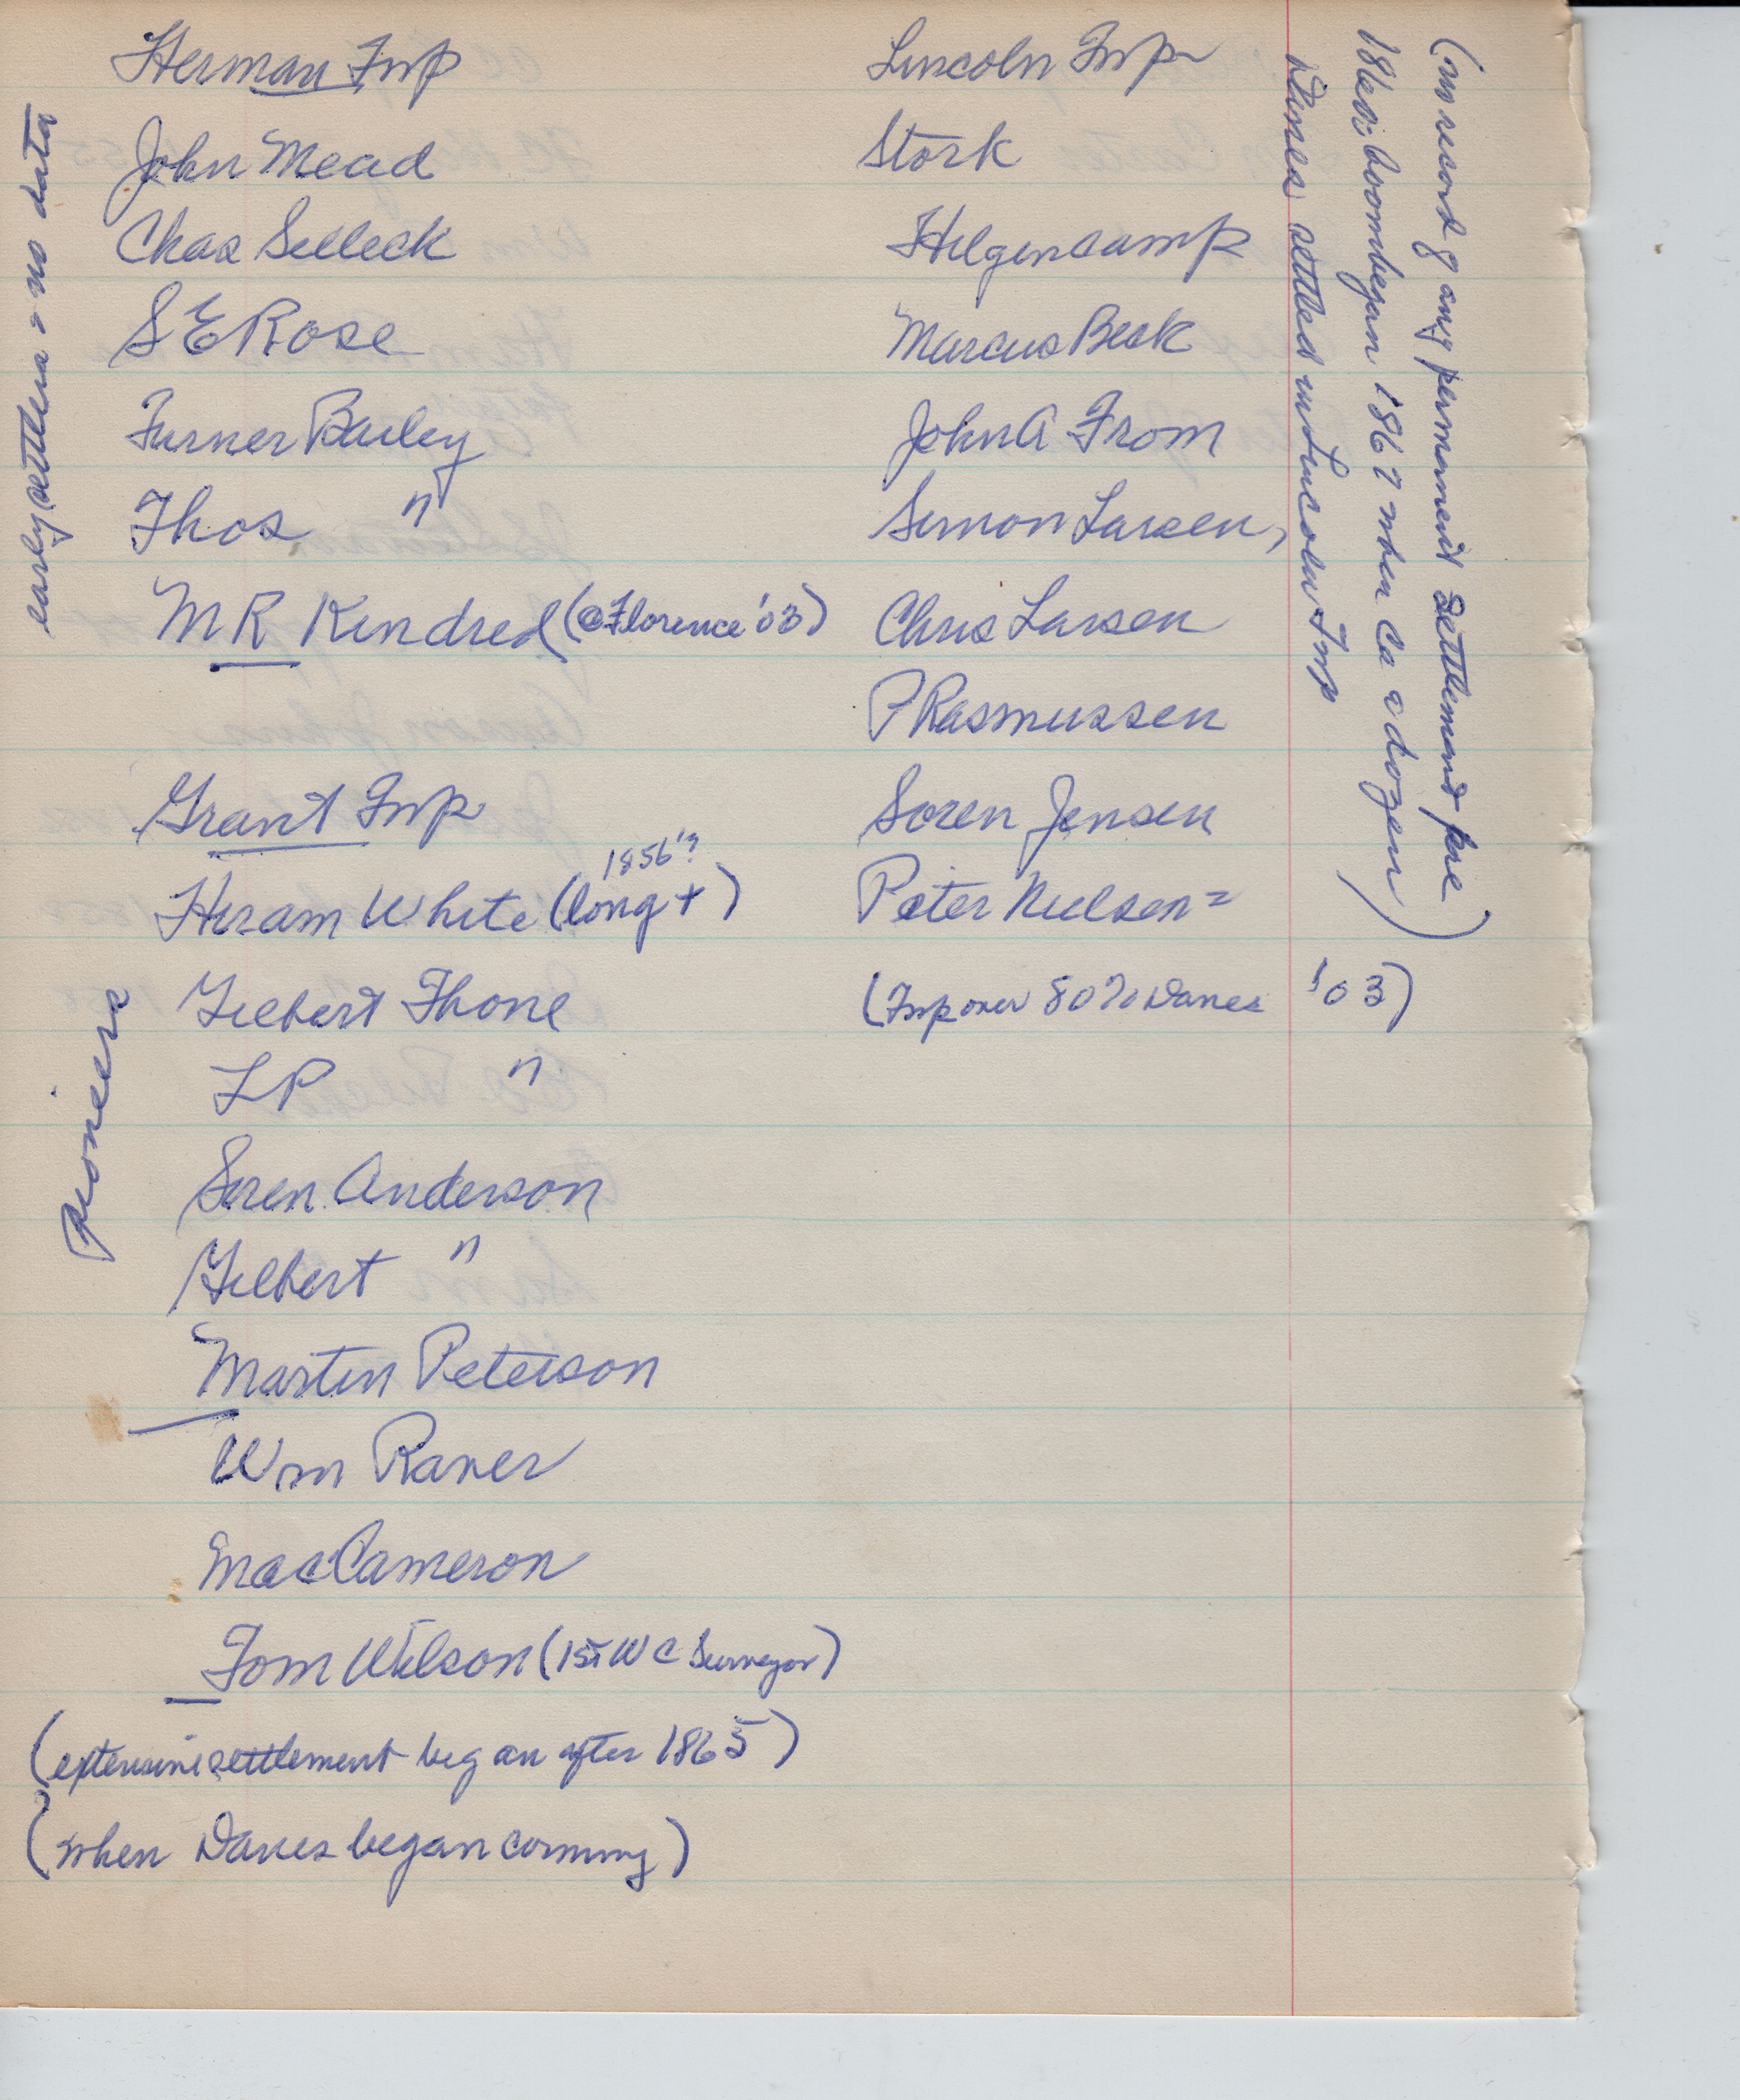 early settlers - no data
Herman Twp
John Mead
Chas Selleck
S E Rose
Turner Bailey
Thos "
M R Kendred (@ Florence '03)
Grant Twp
1856?
Hiram White (long +)
Pioneers
Gilbert Thone
L P "
Soren Anderson
Gilbert "
Martin Peterson
Wm Raver
Mac Cameron
Tom Wilson (1st W C Surveyor)
(extensive settlement began after 1865)
(when Danes began coming)
Lincoln Twp
Stork
Hilgencamp
Marcus Beck
John A From
Simon Larsen,
Chris Larsen
P Rasmussen
Soren Jensen
Peter Nielsen =
(Twp over 80% Danes '03)
(no record of any permanent settlement pre
186 boom began 1867 when Ca a dozen)
Danes settled in Lincoln Twp